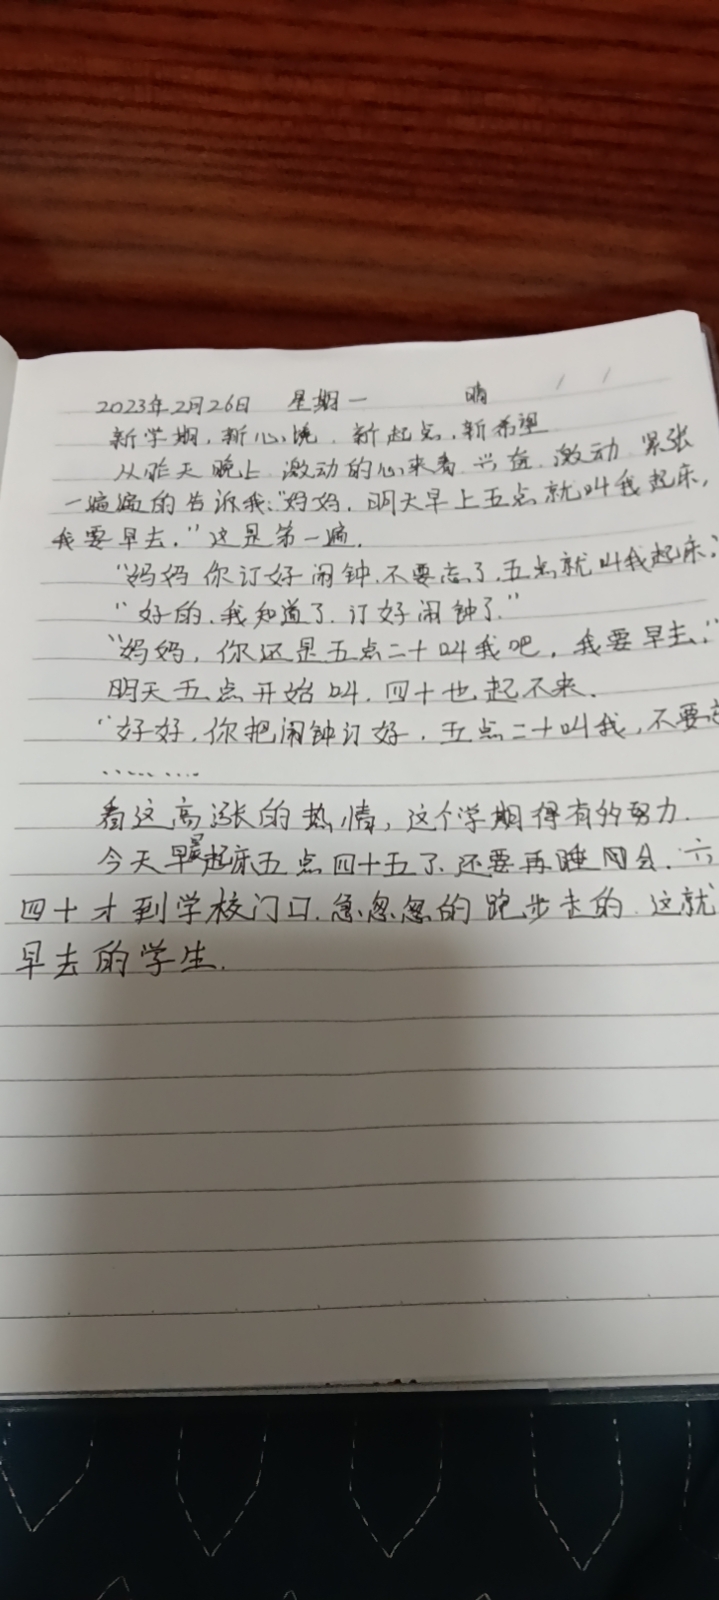 2023年2月26日 星期一 晴
新学期,新心境.新起点,新希望
从昨天晚上激动的心来看.兴奋.激动 紧张
一遍遍的告诉我:"妈妈,明天早上五点就叫我起床,
我要早去."这是第一遍.
"妈妈 你订好闹钟.不要忘了,五点就叫我起床.
"好的.我知道了.订好闹钟了."
"妈妈,你还是五点二十叫我吧,我要早去."
明天五点开始叫.四十也起不来.
"好好,你把闹钟订好.五点二十叫我,不要忘
………
看这高涨的热情,这个学期得有的努力.
今天早晨起床五点四十五了.还要再睡回会.六
四十才到学校门口.急忽忽的跑步走的.这就
早去的学生.